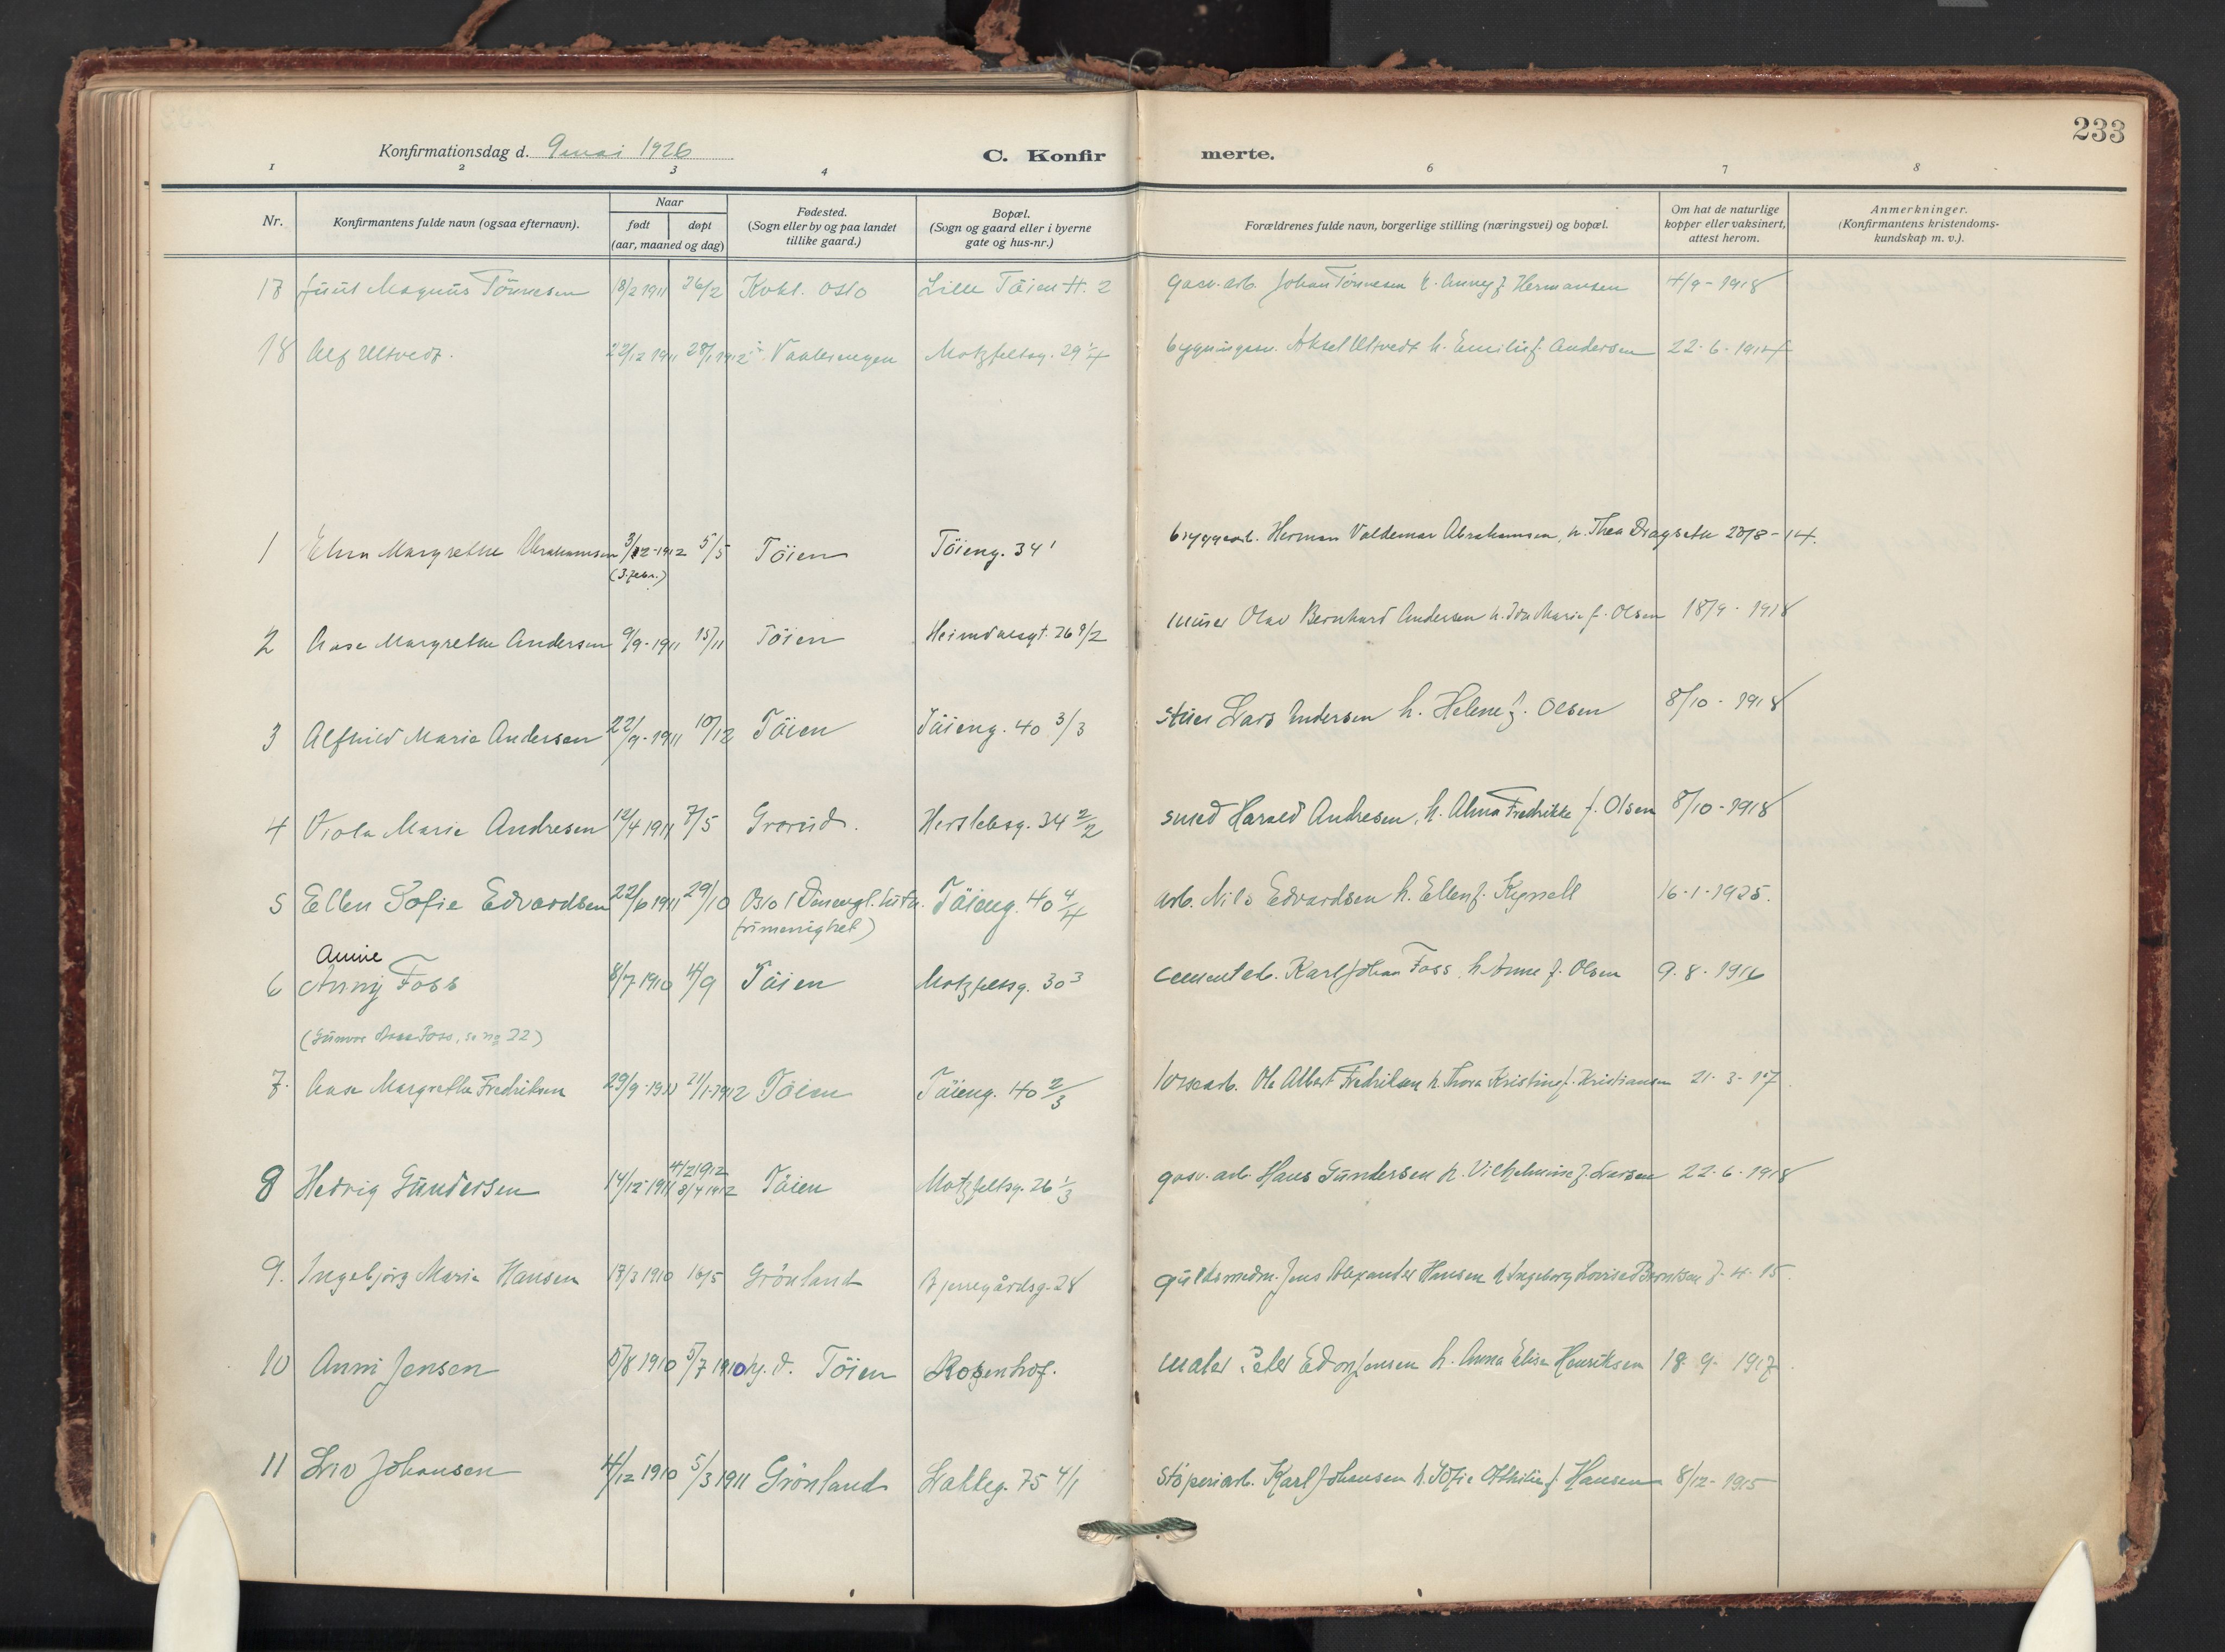 233
Konfirmationsdag d. 9 mai 1926
C. Konfir merte.
1 2 3 4 6 7 8
Nr.
Konfirmantens fulde navn (ogsaa efternavn).
Naar
født døpt
(aar, maaned og dag)
Fødested.
(Sogn eller by og paa landet
tillike gaard.)
Bopæl.
(Sogn og gaard eller i byerne
gate og hus-nr.)
Forældrenes fulde navn, borgerlige stilling (næringsvei) og bopæl.
Om hat de naturlige
kopper eller vaksinert,
attest herom.
Anmerkninger.
(Konfirmantens kristendoms-
kundskap m. v.).
17 Juul Magnus Tönnesen 18/2 1911 26/2 Kvkl. Oslo Lille Töien H. 2 gasv. arb. Johan Tönnesen h. Anney f. Hermansen 4/9 - 1918
18 Alf Ultvedt. 22/12 1911 28/1 1912 Vaalerengen Motzfeltsg. 29 1/4 bygningssn. Aksel Ultvedt h. Emilie f. Andersen 22-6-1914
1 Margrethe Abrahamsen 3/12-1912 5/5 Töien Töieng. 34 1 bryggearb. Herman Valdemar Abrahamsen, h. Thea Dragseth 20/8-14.
(3. febr.)
2 Aase Margrethe Andersen 9/9-1911 15/11 Töien Heimdalsgt. 26 9/2 murer Olav Bernhard Andersen h. Ida Marie f. Olsen 18/9 - 1918
3 Alfhild Marie Andersen 22/9-1911 10/12 Töien Töieng. 40 3/3 Lars Andersen h. Helene f. Olsen 8/10 - 1918
4 Viola Marie Andresen 12/4 1911 7/5 Grorud. Herslebsg. 34 2/2 smed Harald Andresen, h. Alma Fredrikke f. Olsen 8/10 - 1918
5 Ellen Sofie Edvardsen 22/6 1911 29/10 Oslo (Den evgl. luth. Töieng. 40 4/4 arb. Nils Edvardsen h. Ellen f. 16-1-1925.
frimenighet)
Annie
6 Anny Foss 8/7 1910 4/9 Töien Motzfeltsg. 30 3 cementarb. Karl Johan Foss, h. Anne f. Olsen 9.8.1916
(Gunvor Foss, se no 22)
7. Aase Margrethe Fredriksen 29/9-1911 21/1-1912 Töien Töieng. 40 2/3 Ole Albert Fredriksen h. Thora Kristine f. Kristiansen 21-3-17.
4/2 1912
8 Hedvig Gundersen 14/12-1911 8/4 1912 Töien Motzfeltsg. 26 1/3 gasv. arb. Hans Gundersen h. Vilhelmine f. Larsen 22-6-1918
9. Ingebjörg Marie Hansen 17/3 1910 16/5 Grönland Bjerregårdsg. 28 guldsmedm. Jens Alexander Hansen h. Ingeborg Lovise Berntsen 7-4-15.
10 Anni Jensen 5/8 1910 5/7 1910 hj. d. Töien Rosenhof. maler Peter Edon Jensen h. Anna Elise Henriksen 18-9-1917.
11 Liv Johansen 4/12 1910 5/3 1911 Grönland Lakkeg. 75 4/1 Stöperiarb. Karl Johansen h. Sofie Othilie f. Hansen 8/12-1915